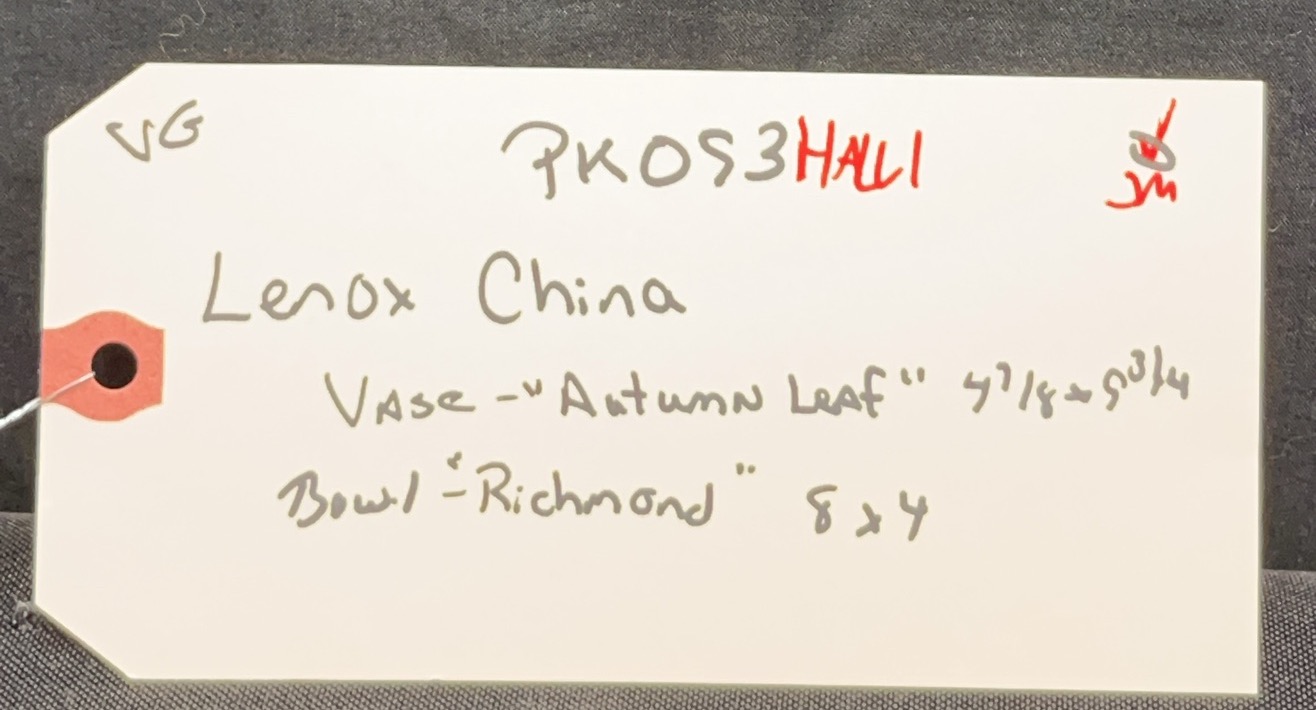 VG PK053HALL1 JM
Lenox China
Vase - "Autumn Leaf" 4 7/8 x 9 3/4
Bowl - "Richmond" 8 x 4